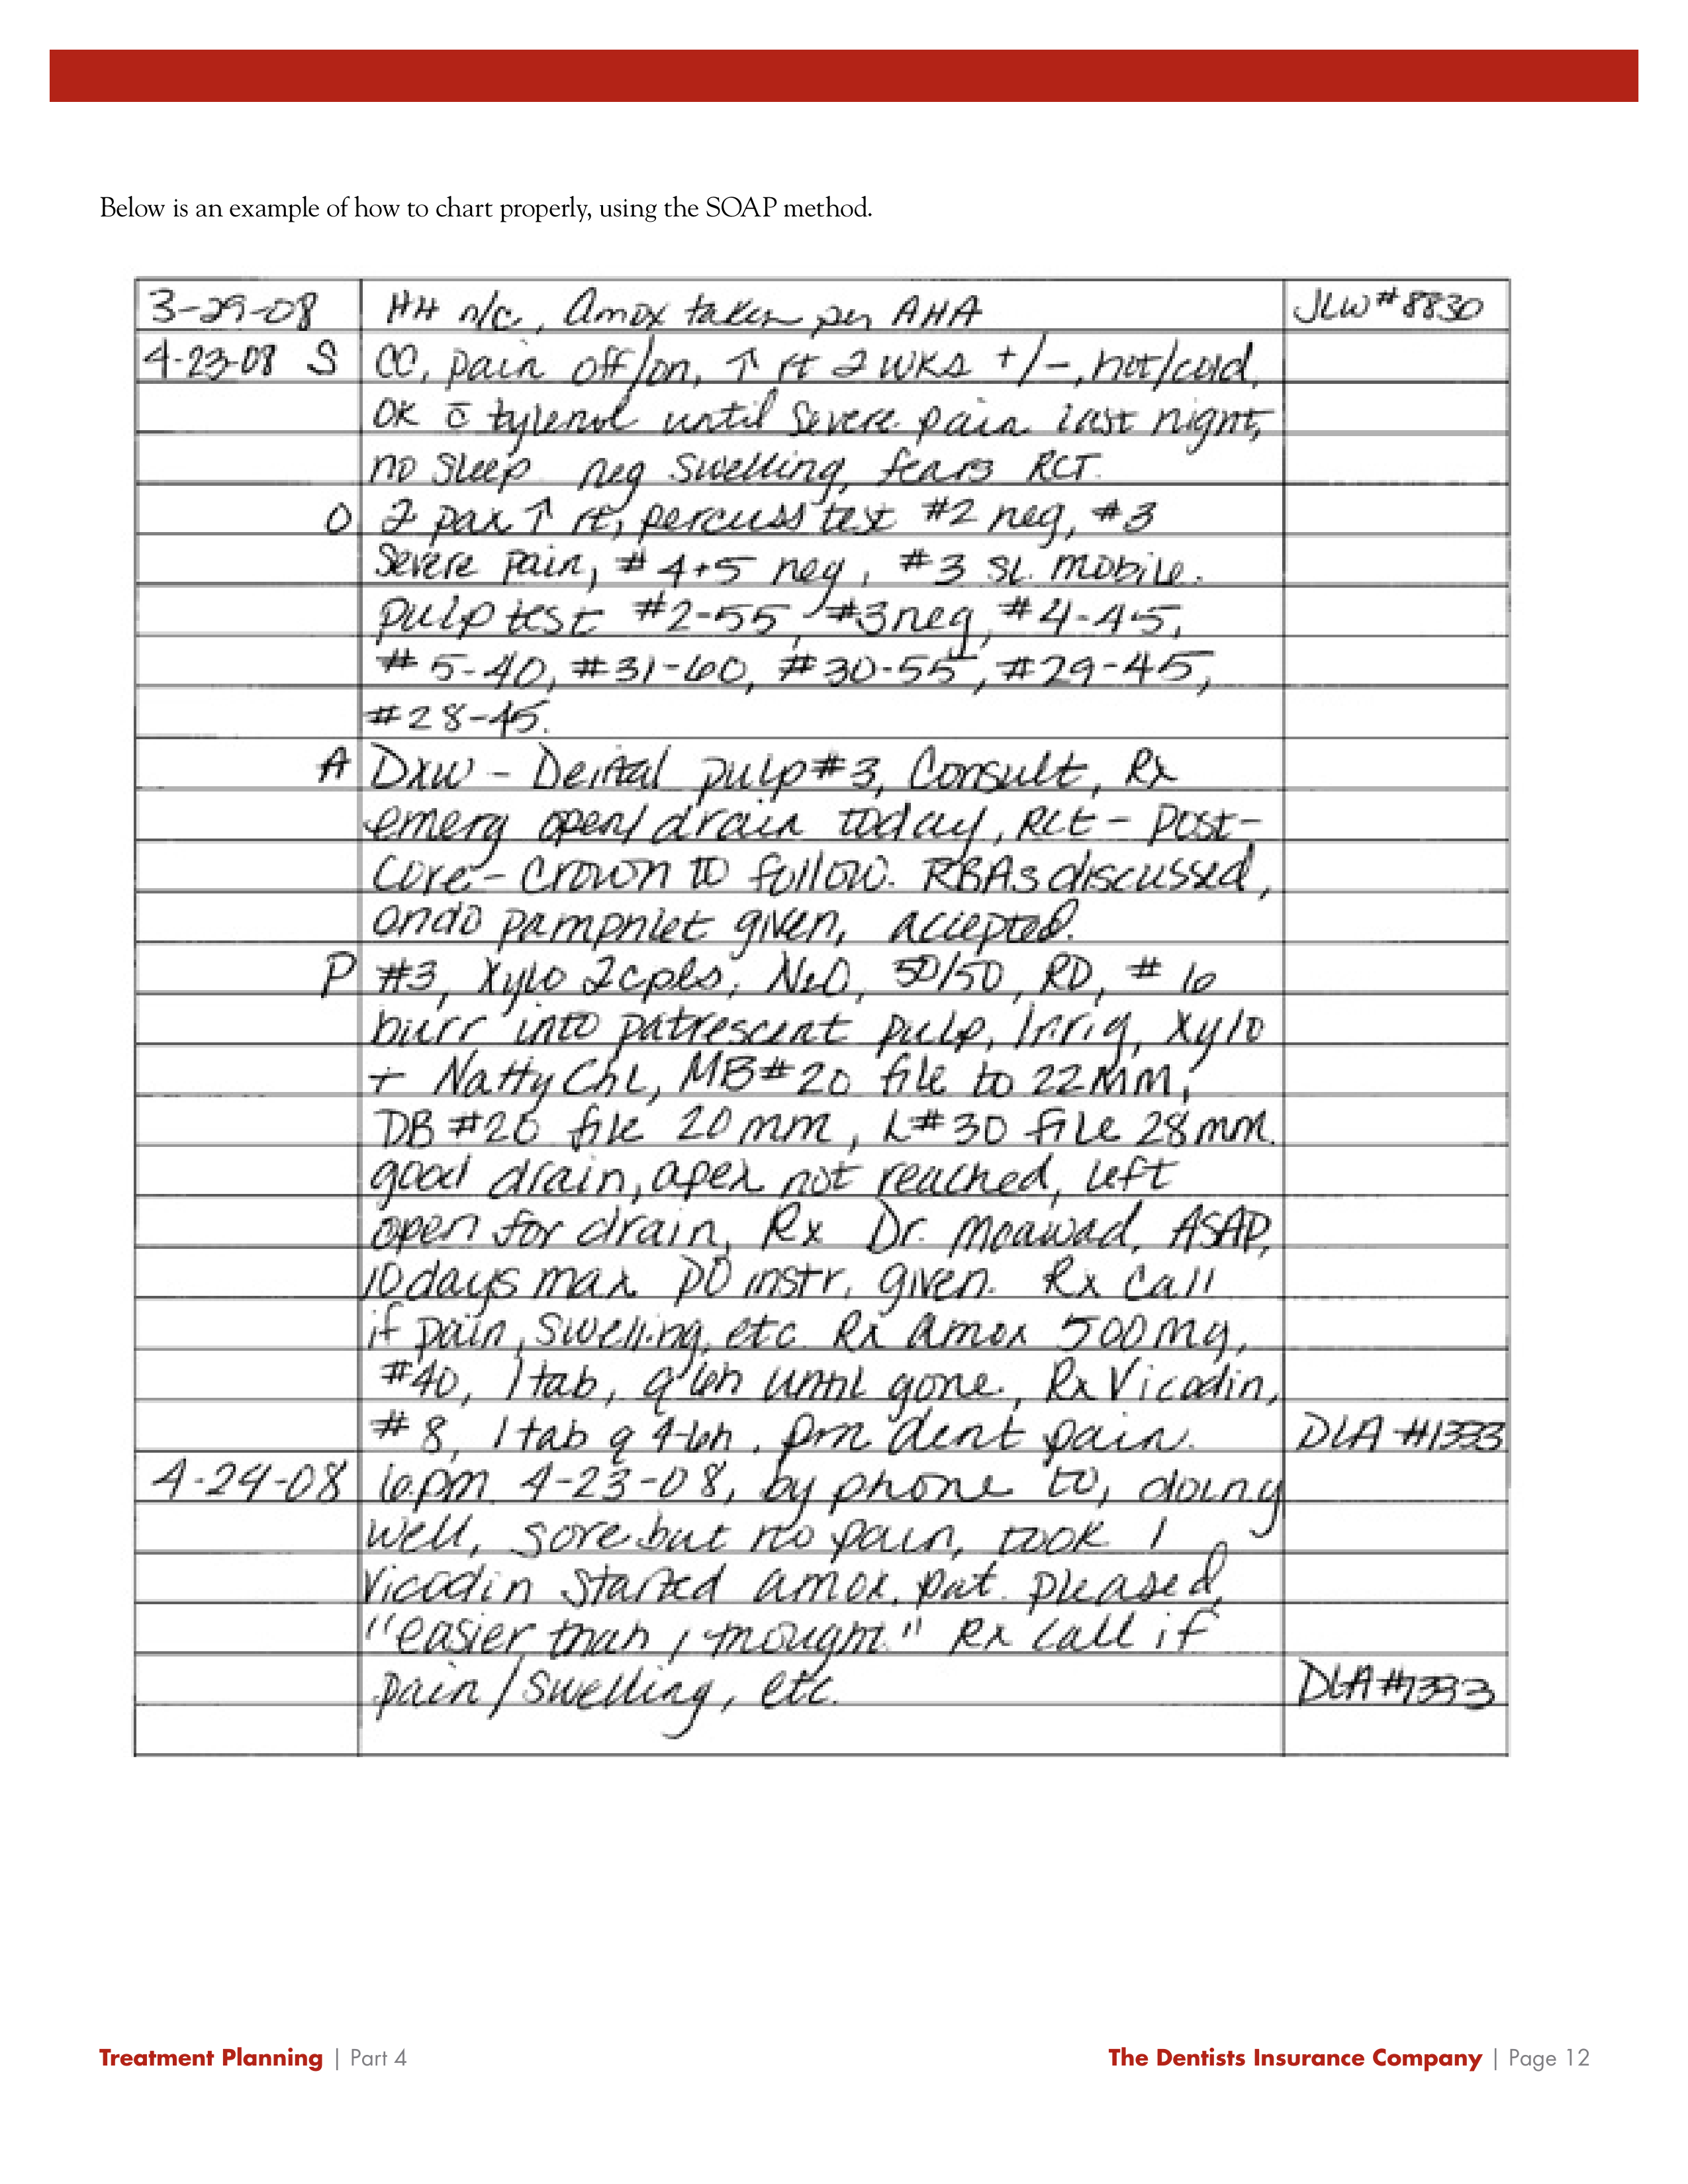 Below is an example of how to chart properly, using the SOAP method.
3-29-08 HH n/c, Amox taken per AHA JLW#8830
4-23-08 S CC, pain off/on, ↑ rt 2 wks +/-, hot/cold,
OK c̄ tylenol until severe pain last night,
no sleep neg swelling, fears RCT.
O 2 pax ↑ rt, percuss test #2 neg, #3
severe pain, #4+5 neg, #3 sl. mobile.
pulp test #2-55, #3 neg, #4-45,
#5-40, #31-60, #30-55, #29-45,
#28-45.
A pulp #3, Consult, Rx
emerg open/drain today, RCt - Post-
Core - Crown to follow. RBAs discussed,
endo pamphlet given, accepted.
P #3, Xylo 2cpls, N2O, 50/50, RD, #6
burr into patrescent pulp, Irrig, Xylo
+ ChL, MB#20 file to 22MM,
DB #20 file 20mm, L#30 file 28mm.
good drain, apex not reached, left
open for drain, Rx Dr. Moawad, ASAP,
10 days max PO instr. given. Rx Call
if pain, swelling, etc. Rx amox 500mg,
#40, 1 tab, q 6h until gone, Rx Vicodin,
#8, 1 tab q 4-6h, prn dent pain. DLA #1333
4-24-08 6pm 4-23-08, by phone to, doing
well, sore but no pain, took 1
Vicodin started amox, pat. pleased,
"easier than I thought" Rx call if
pain/swelling, etc. DLA#1333
Treatment Planning | Part 4 The Dentists Insurance Company | Page 12